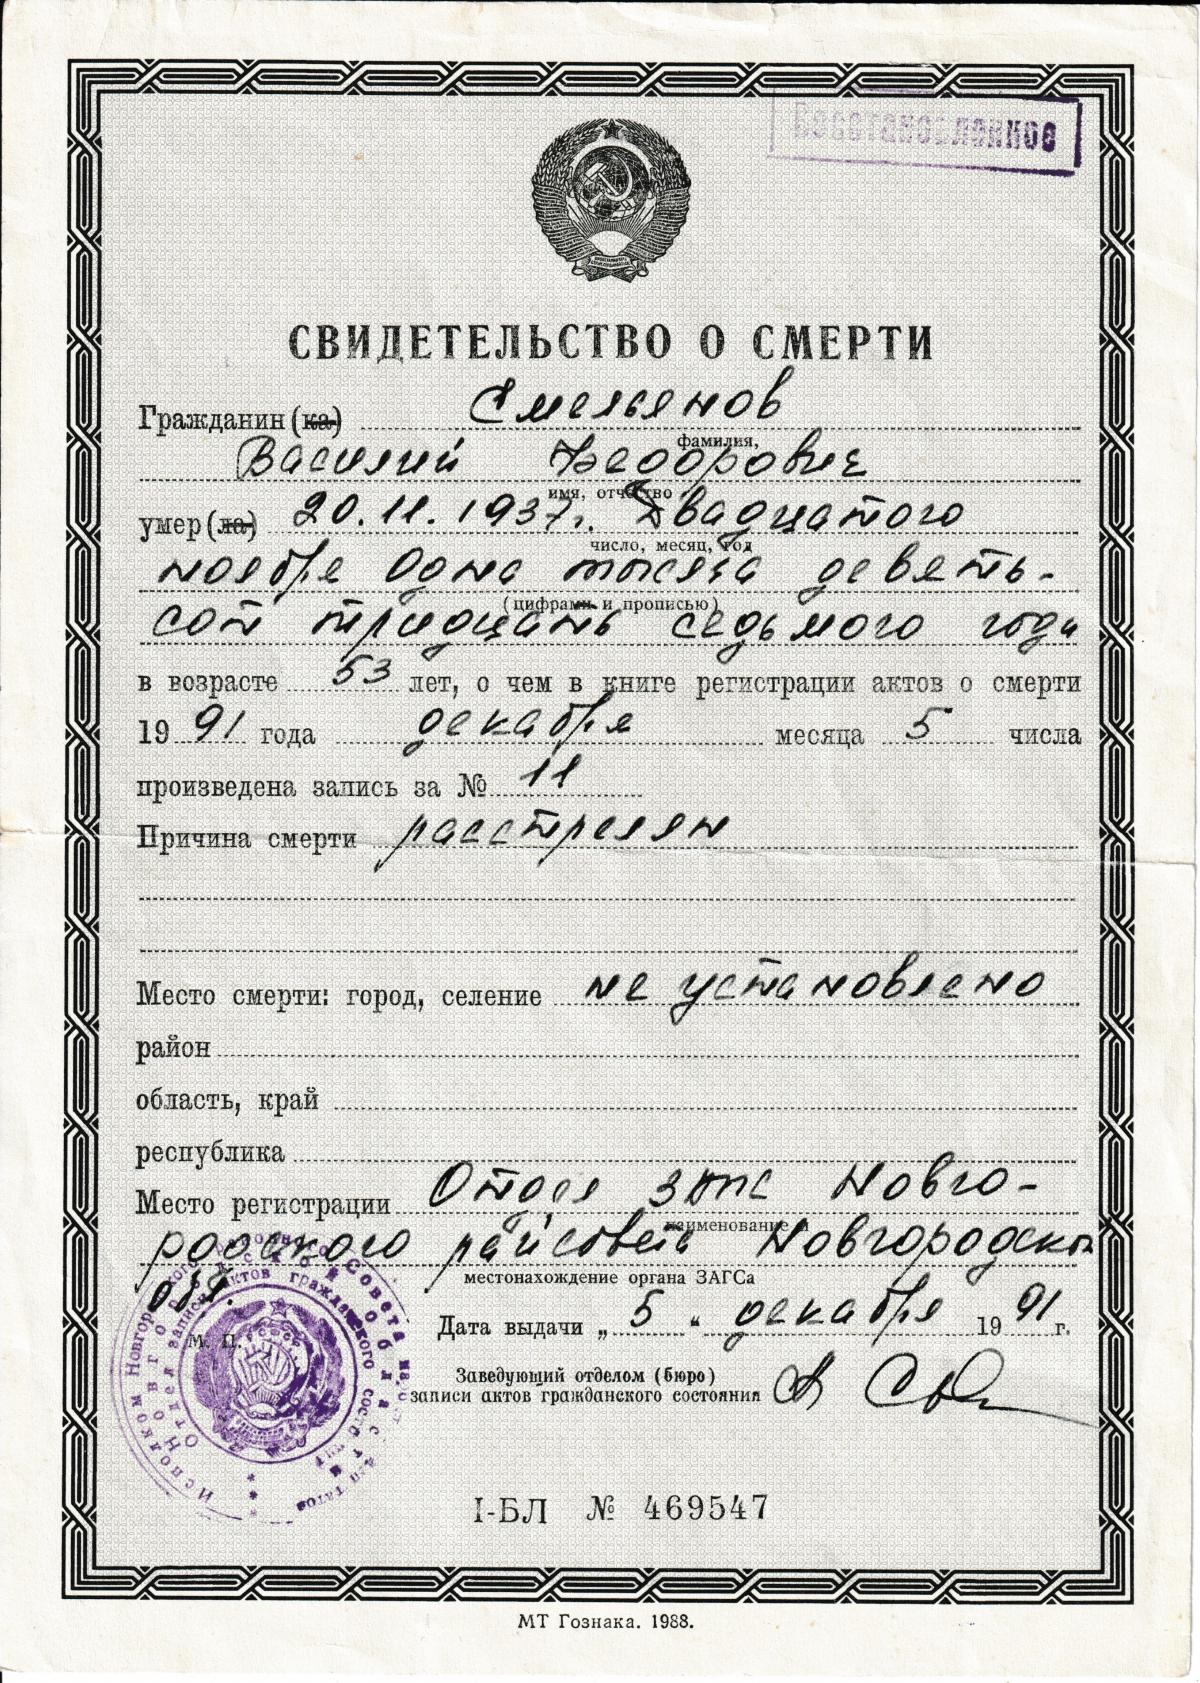 Восстановленное
СВИДЕТЕЛЬСТВО О СМЕРТИ
Гражданин (ка) Емельянов
фамилия,
Василий Федорович
имя, отчество
умер (ла) 20.11.1937г. Двадцатого
число, месяц, год
ноября Одна тысяча девять-
(цифрами и прописью)
сот тридцать седьмого года
в возрасте 53 лет, о чем в книге регистрации актов о смерти
19 91 года декабря месяца 5 числа
произведена запись за № 11
Причина смерти расстрелян
Место смерти: город, селение не установлено
район
область, край
республика
Место регистрации Отдел ЗАГС Новго-
наименование и
родского райсовета Новгородской
местонахождение органа ЗАГСа
обл.
М. П.
Дата выдачи „ 5 “ декабря 19 91 г.
Заведующий отделом (бюро)
записи актов гражданского состояния
I-БЛ № 469547
МТ Гознака. 1988.